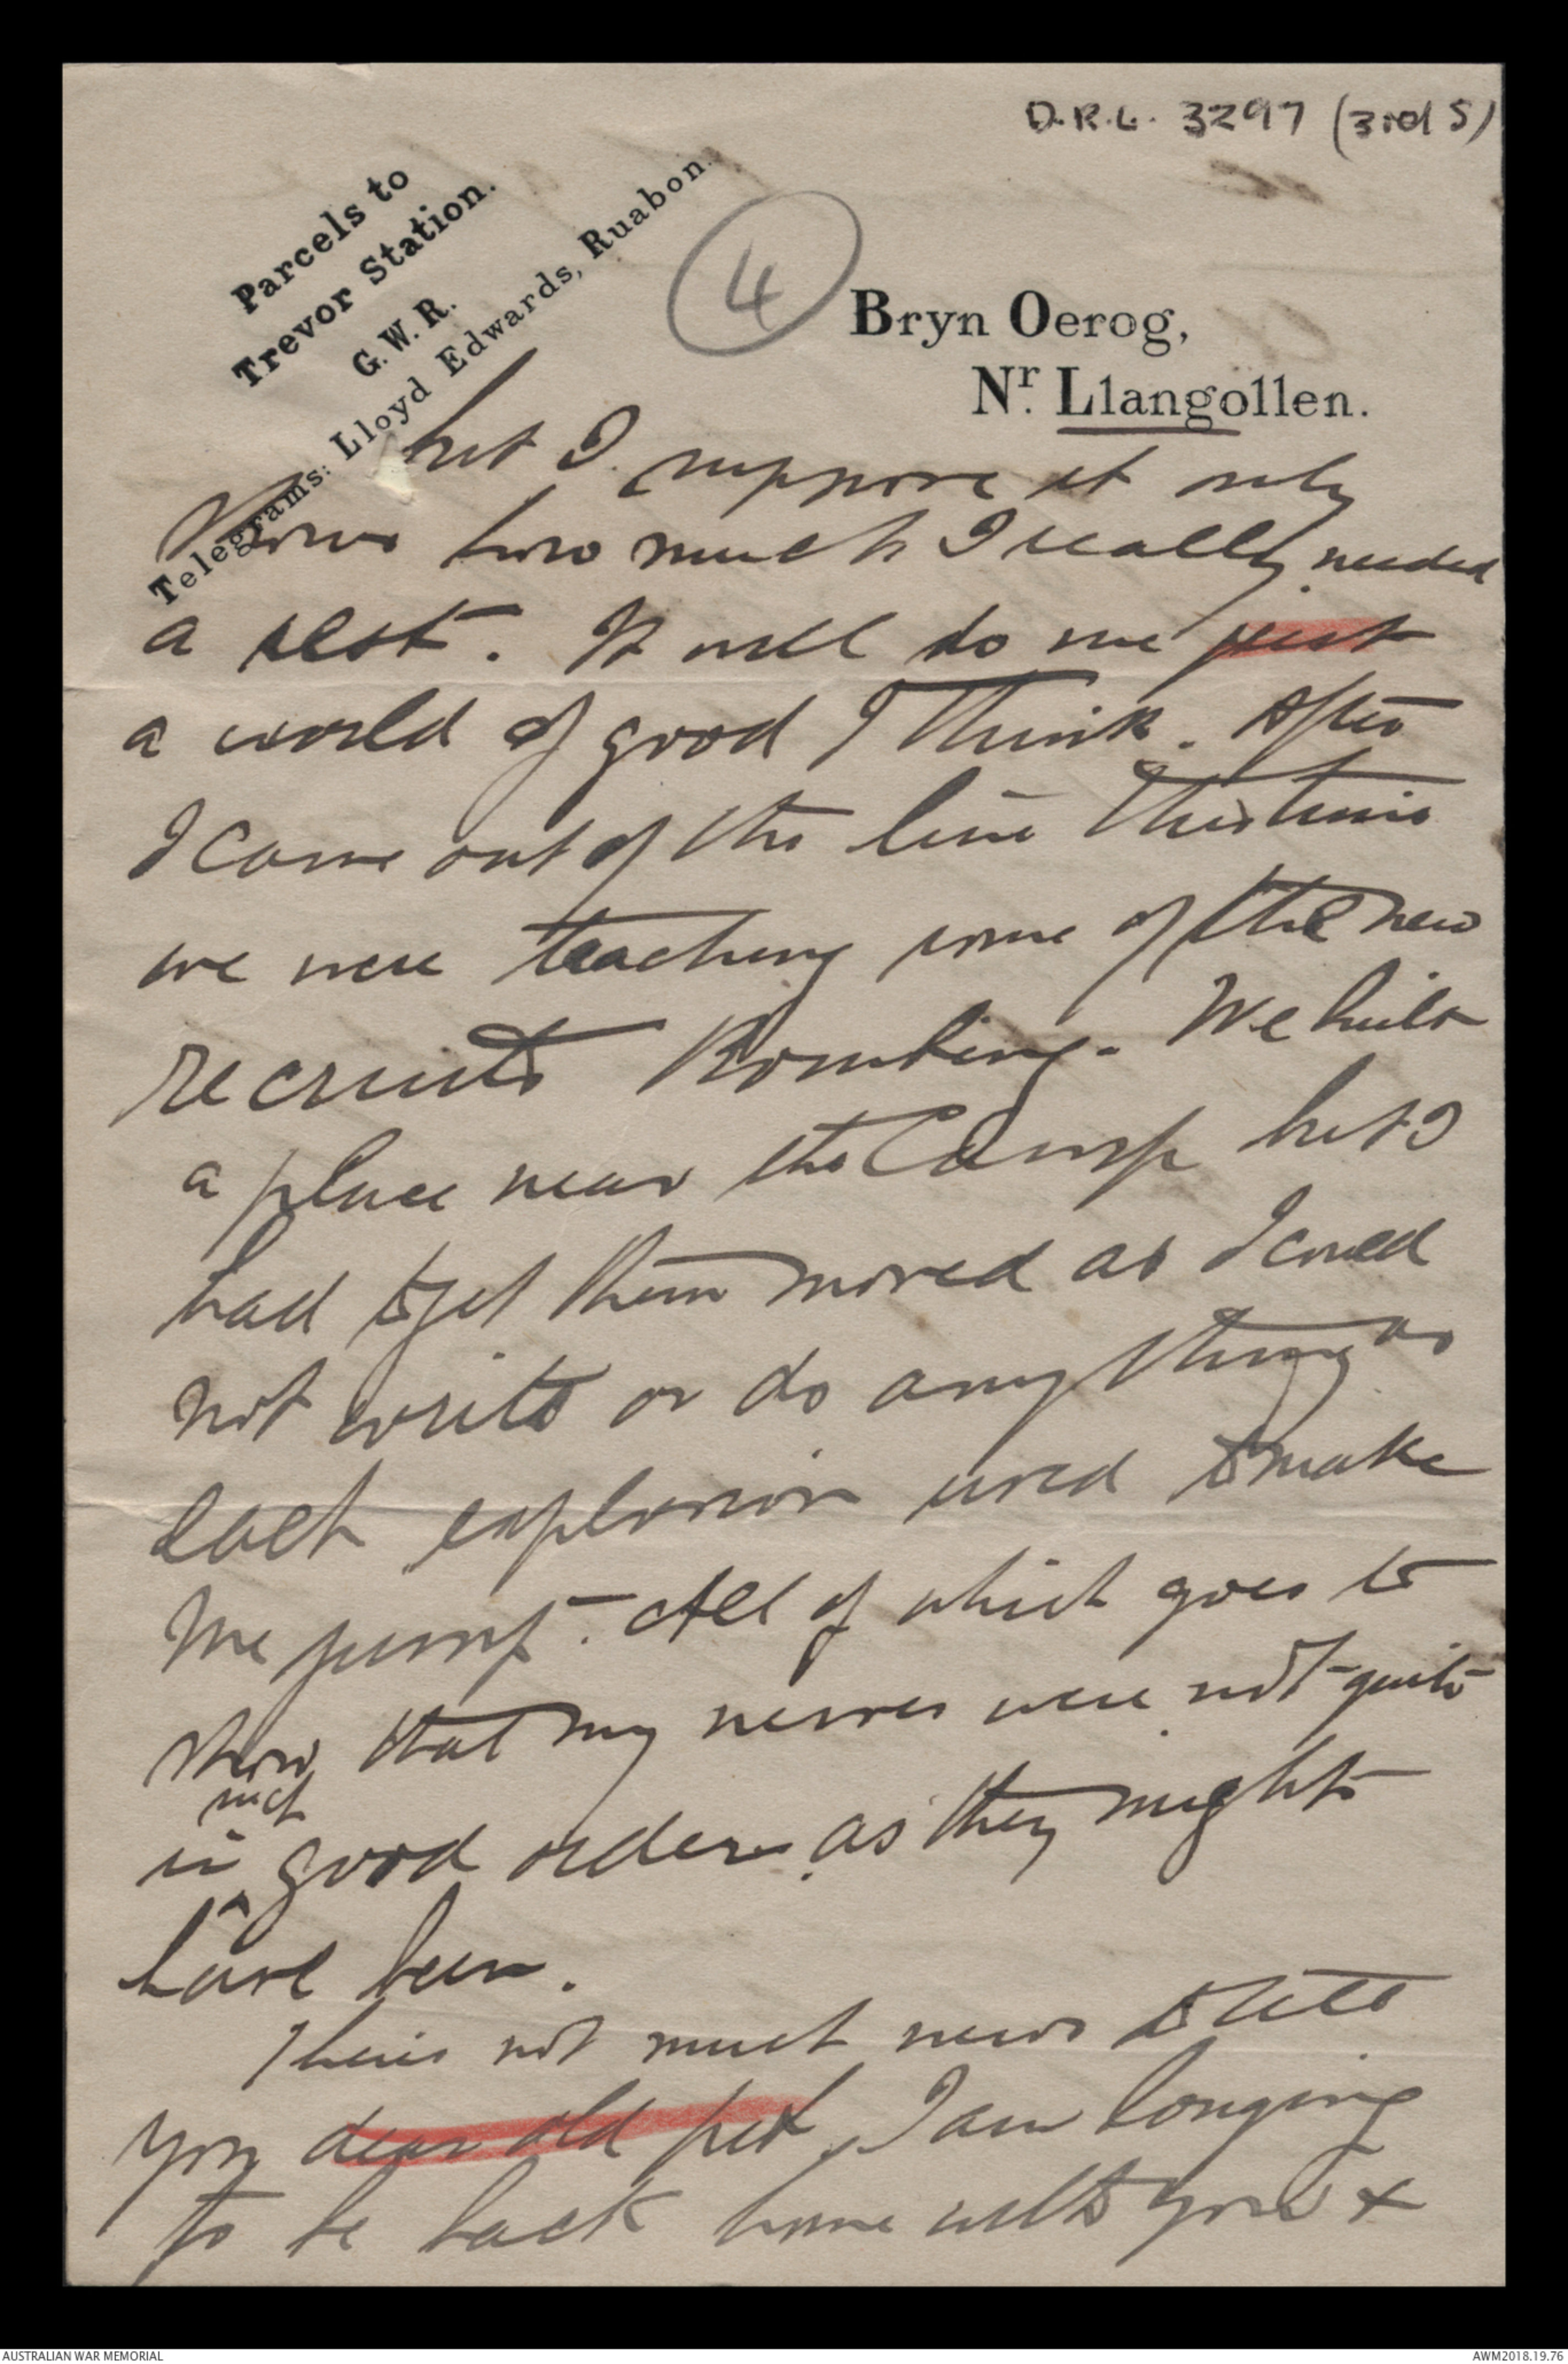 D.R.L. 3297 (3rd S)
Parcels to
Trevor Station.
G. W. R.
Telegrams: Lloyd Edwards, Ruabon.
4
Bryn Oerog,
Nr. Llangollen.
but I suppose it only
shows how much I really needed
a rest. It will do me just
a world of good I think. After
I came out of the line this time
we were teaching some of the new
recruits Bombing. We built
a place near the Camp but I
had to get them moved as I could
not write or do anything as
each explosion used to make
me jump. All of which goes to
show that my nerves were not quite
in such good order as they might
have been.
There's not much news to tell
you dear old pet, I am longing
to be back home with you &
AUSTRALIAN WAR MEMORIAL
AWM2018.19.76